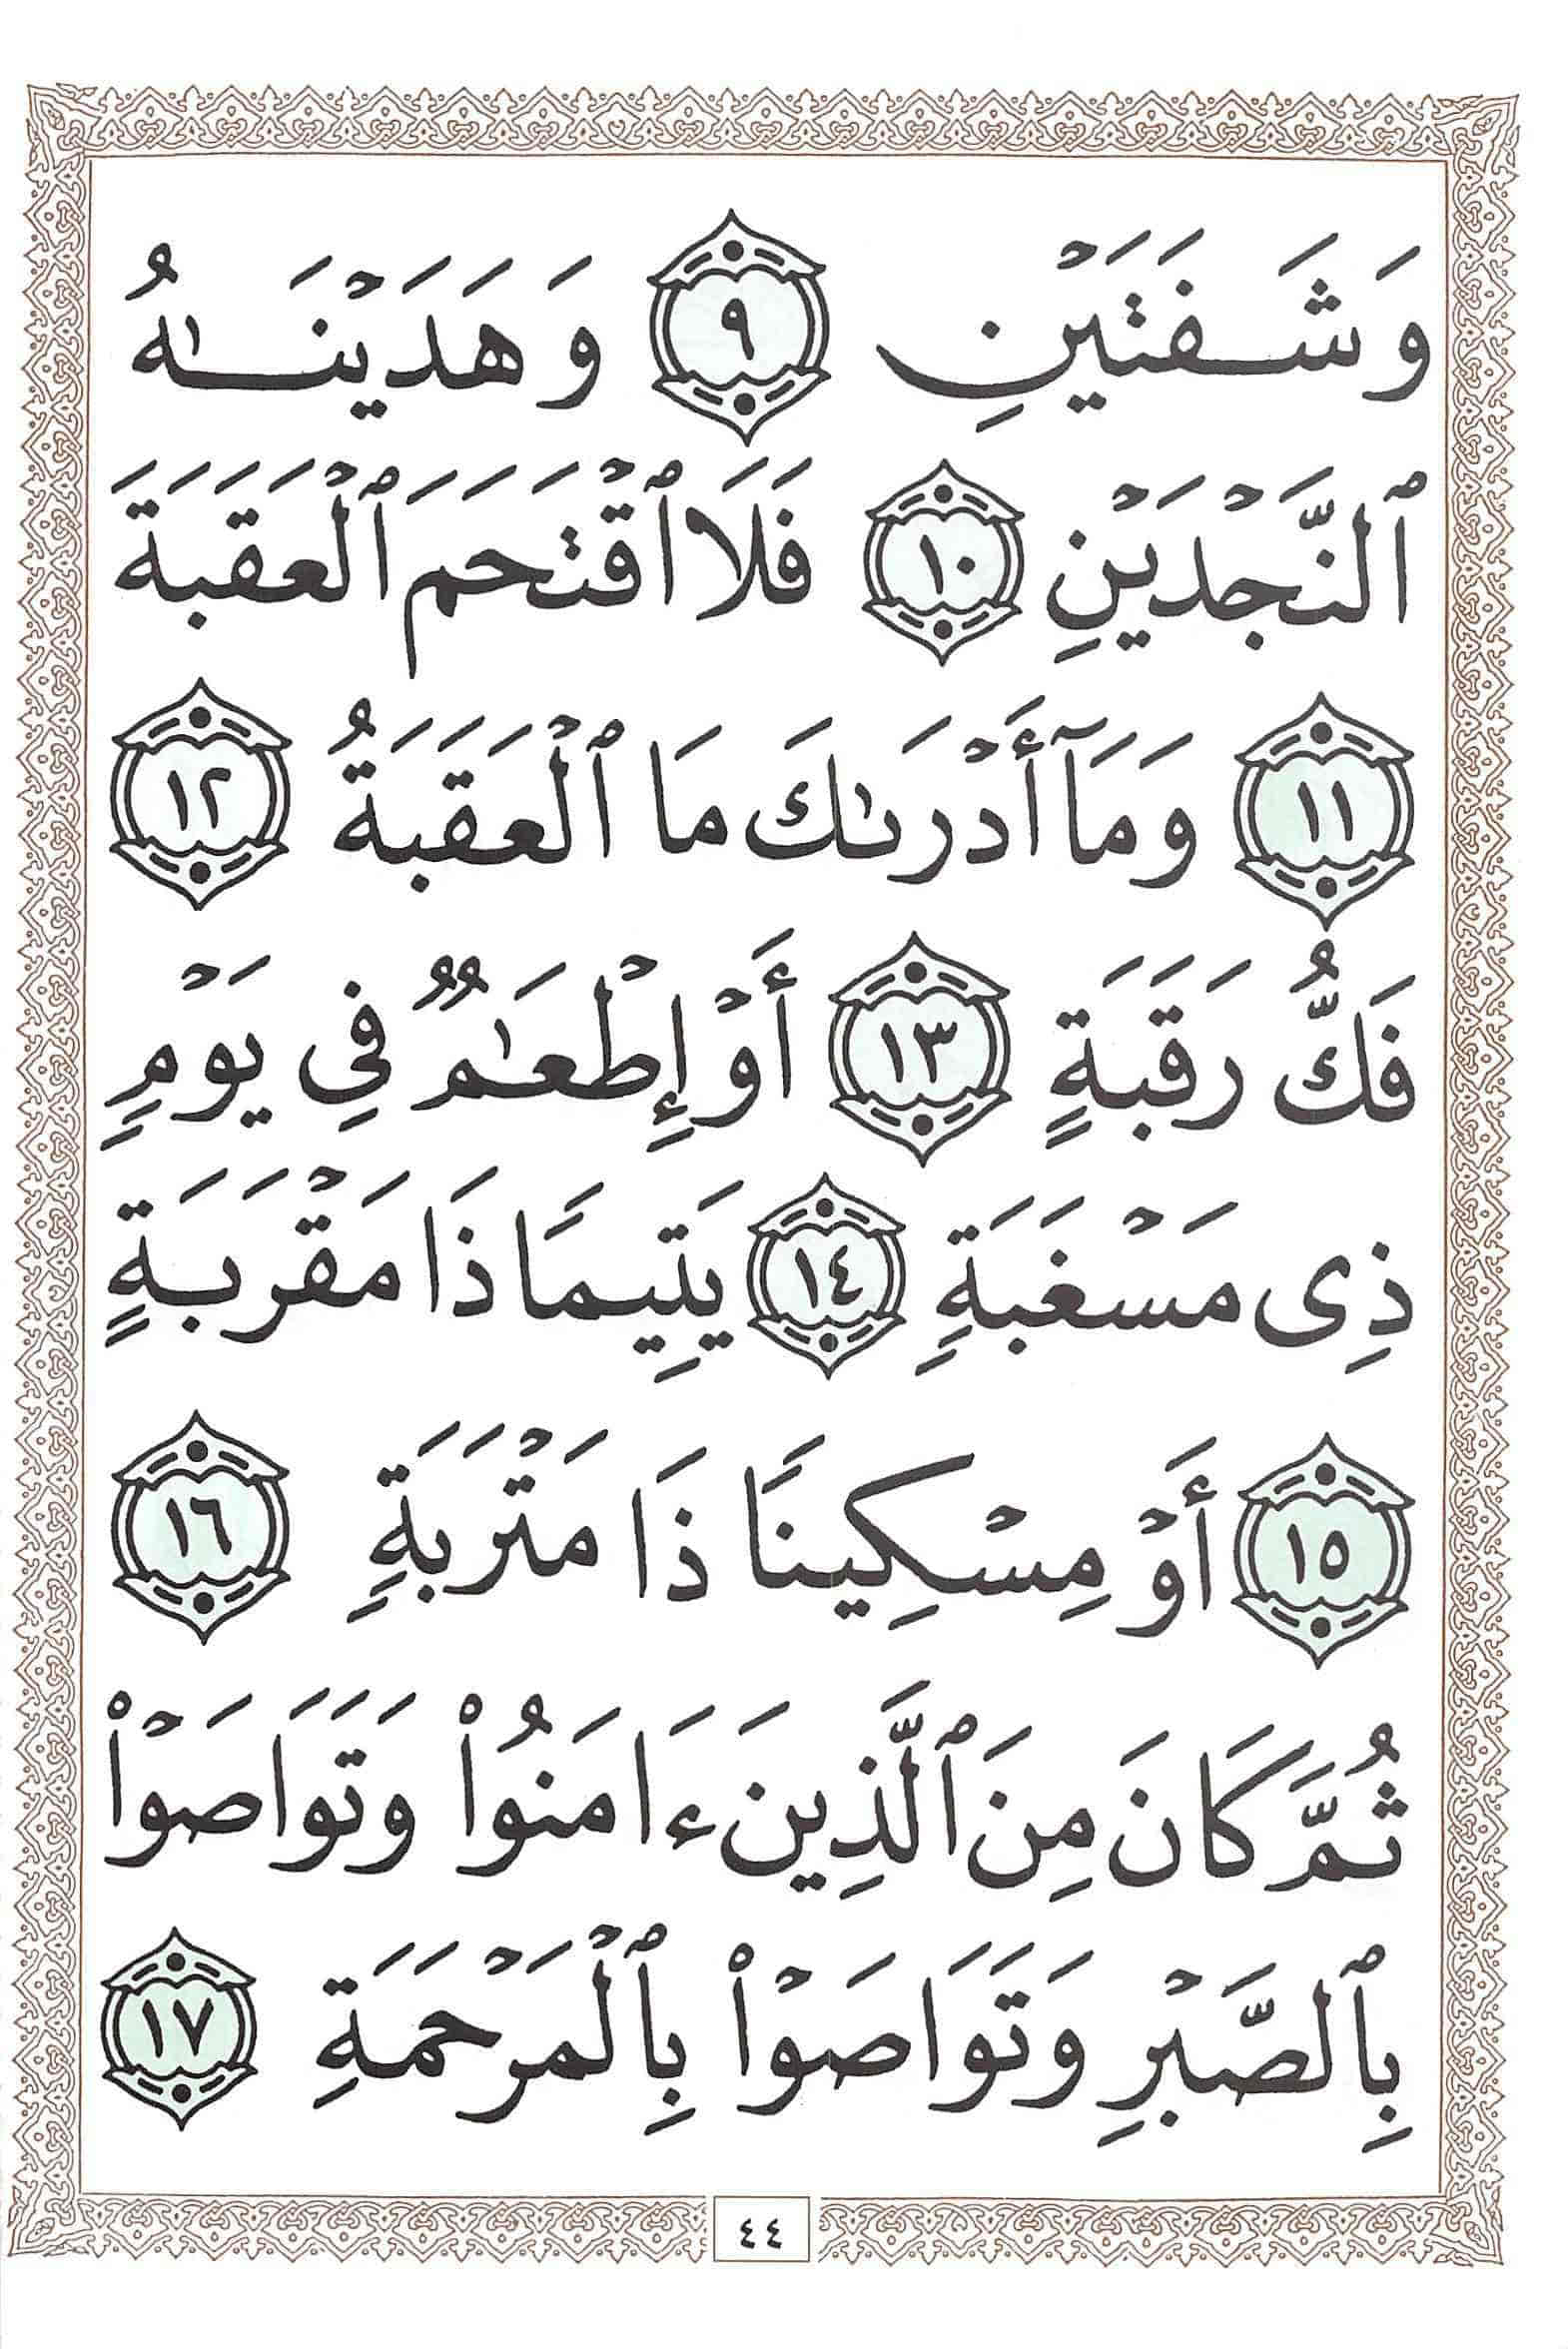 وَشَفَتَيْنِ ٩ وَهَدَيْنَٰهُ
ٱلنَّجْدَيْنِ ١٠ فَلَا ٱقْتَحَمَ ٱلْعَقَبَةَ
١١ وَمَآ أَدْرَىٰكَ مَا ٱلْعَقَبَةُ ١٢
فَكُّ رَقَبَةٍ ١٣ أَوْ إِطْعَٰمٌ فِي يَوْمٍ
ذِى مَسْغَبَةٍ ١٤ يَتِيمًا ذَا مَقْرَبَةٍ
١٥ أَوْ مِسْكِينًا ذَا مَتْرَبَةٍ ١٦
ثُمَّ كَانَ مِنَ ٱلَّذِينَ ءَامَنُوا۟ وَتَوَاصَوْا۟
بِٱلصَّبْرِ وَتَوَاصَوْا۟ بِٱلْمَرْحَمَةِ ١٧
٤٤